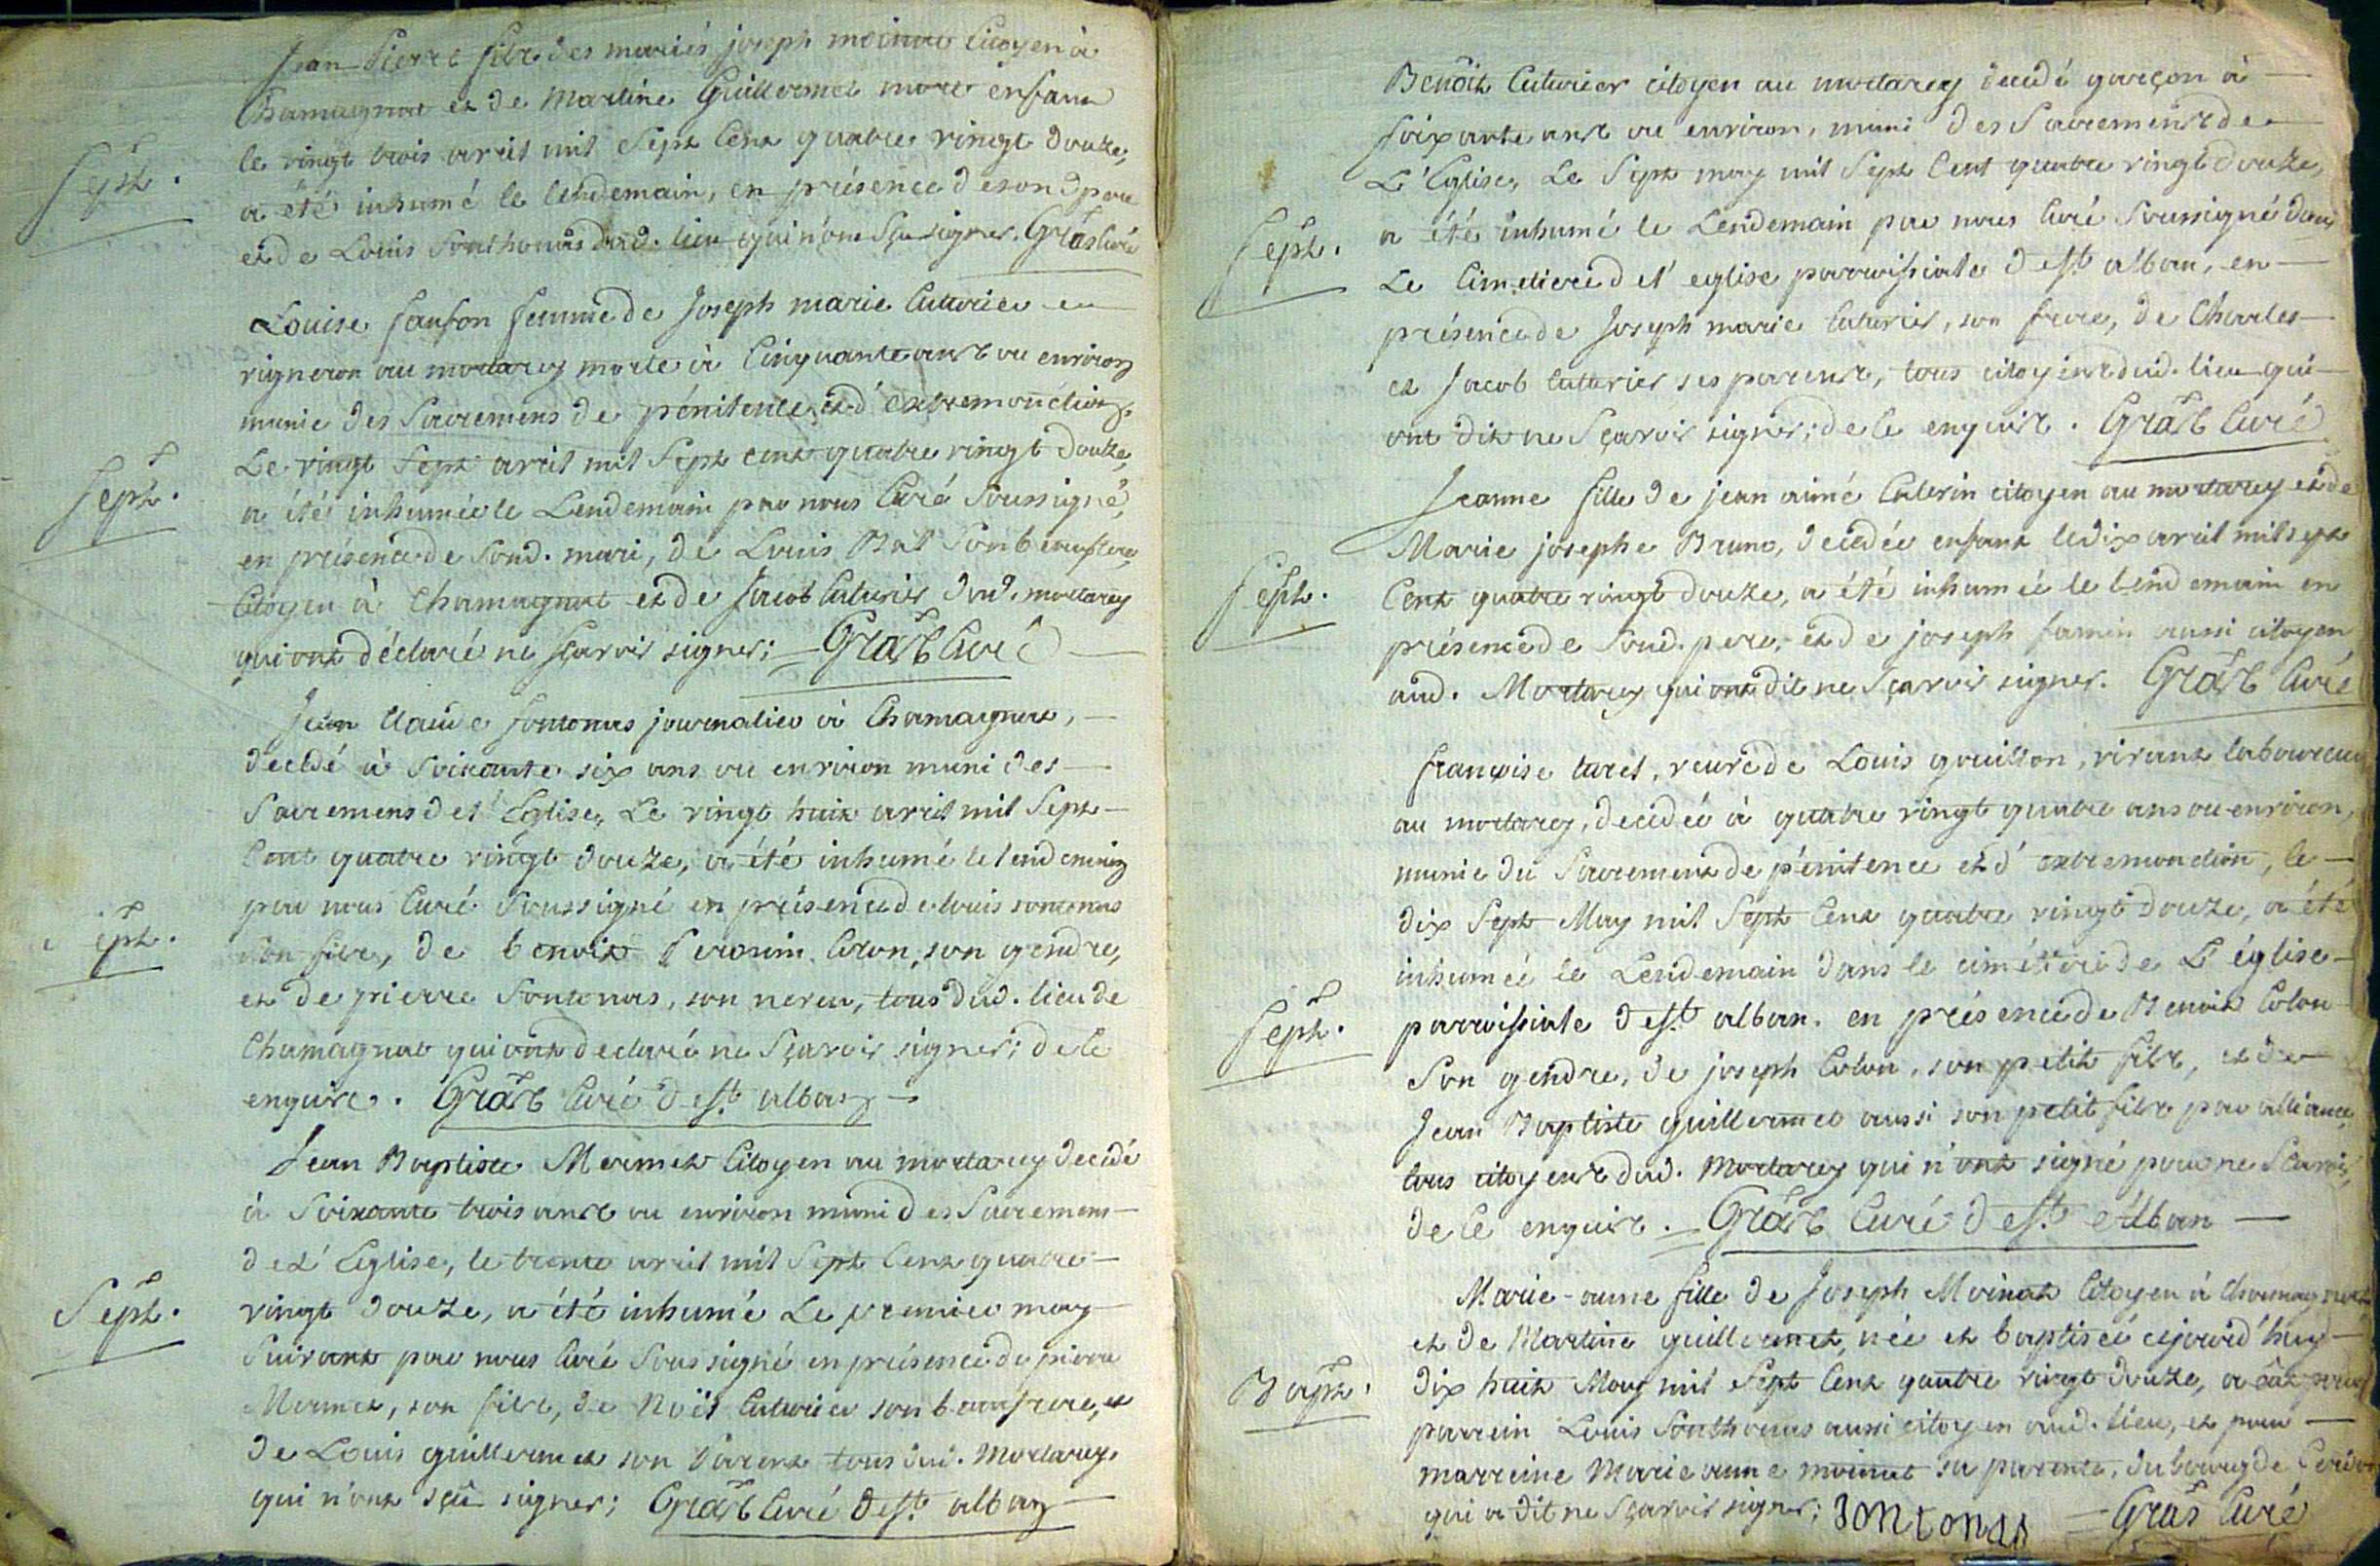 Jean Pierre fils des mariés joseph moinat Citoyen à
Chamagnat et de Martine Guillermet mort enfant
le vingt trois avril mil Sept Cent quatre vingt douze,
Sept.
a été inhumé le lendemain, en présence de sond pere
et de Louis Sonthonas dud. lieu qui n'ont Sçu signer. Gras Curé
Louise fanfon femme de Joseph marie Cuturier
vigneron au mortarey morte à Cinquante ans ou environ
munie des Sacremens de pénitence et d'extremonction,
Le vingt Sept avril mil Sept cent quatre vingt douze,
Sept.
a été inhumée le Lendemain par nous Curé Soussigné,
en présence de Sond. mari, de Louis Bal Son beaufrere,
Citoyen à Chamagnat et de Jacob Cuturier dud. mortarey
qui ont déclaré ne sçavoir signer; Gras Curé
Jean Claude Sontonas journalier à Chamagnat,
décédé à Soixante six ans ou environ muni des
Sacremens de l'Eglise, Le vingt huit avril mil Sept
Cent quatre vingt douze, a été inhumé le lendemain
par nous Curé Soussigné en présence de louis sontonas
Sept.
son fils, de benoit Colon, son gendre,
et de pierre Sontonas, son neveu, tous dud. lieu de
Chamagnat qui ont declaré ne Sçavoir signer; de ce
enquis. Gras Curé de St. alban
Jean Baptiste Mermet Citoyen au mortarey décédé
à Soixante trois ans ou environ muni des Sacremens
de L'Eglise, le trente avril mil Sept Cent quatre
Sept.
vingt douze, a été inhumé Le premier may
Suivant par nous Curé Sous signé en présence de pierre
Mermet, son fils, de Noël Cuturier son beaufrere, et
de Louis guillermet son parent tous dud. Mortarey
qui n'ont sçu signer; Gras Curé de St. alban
Benoit Cuturier citoyen au mortarey décédé garçon à
soixante ans ou environ, muni des Sacremens de
L'Eglise, Le Sept may mil Sept Cent quatre vingt douze,
Sept.
a été inhumé le Lendemain par nous Curé Soussigné dans
Le Cimetiere de l'eglise parroissiale de St. alban, en
présence de Joseph marie Cuturier, son frere, de Charles
et Jacob Cuturier ses parens, tous citoyens dud. lieu qui
ont dit ne Sçavoir signer; de ce enquis. Gras Curé
Jeanne fille de jean aimé Cuterin citoyen au mortarey et de
Marie josephe Brunod, décédée enfant le dix avril mil sept
Sept.
Cent quatre vingt douze, a été inhumée le Lendemain en
présence de Sond. pere, et de joseph aussi citoyen
aud. Mortarey qui ont dit ne Sçavoir signer. Gras Curé
françoise tarel, veuve de Louis gouilson, vivant laboureur
au mortarey, décédée à quatre vingt quatre ans ou environ,
munie du Sacrement de pénitence et d'extremonction, le
dix Sept May mil Sept Cent quatre vingt douze, a été
inhumée le Lendemain dans le cimétiere de L'église
Sept.
parroissiale de St. alban. en présence de Benoit Colon
Son gendre, de joseph Colon, son petit fils, et de
Jean Baptiste guillermet aussi son petit fils par alliance,
tous citoyens dud. Mortarey qui n'ont signé pour ne Sçavoir,
de ce enquis. Gras Curé de St. Alban
Marie-anne fille de Joseph Moinat Citoyen à Chamagnat
et de Martine guillermet, née et baptisée cejourd'huy
Bapt.
dix huit May mil Sept Cent quatre vingt douze, a eut pour
parrein Louis Sonthonas aussi citoyen aud. lieu, et pour
marreine Marie anne moinat sa parente, du bourg de Cerdon
qui a dit ne Sçavoir signer; Sontonas Gras Curé